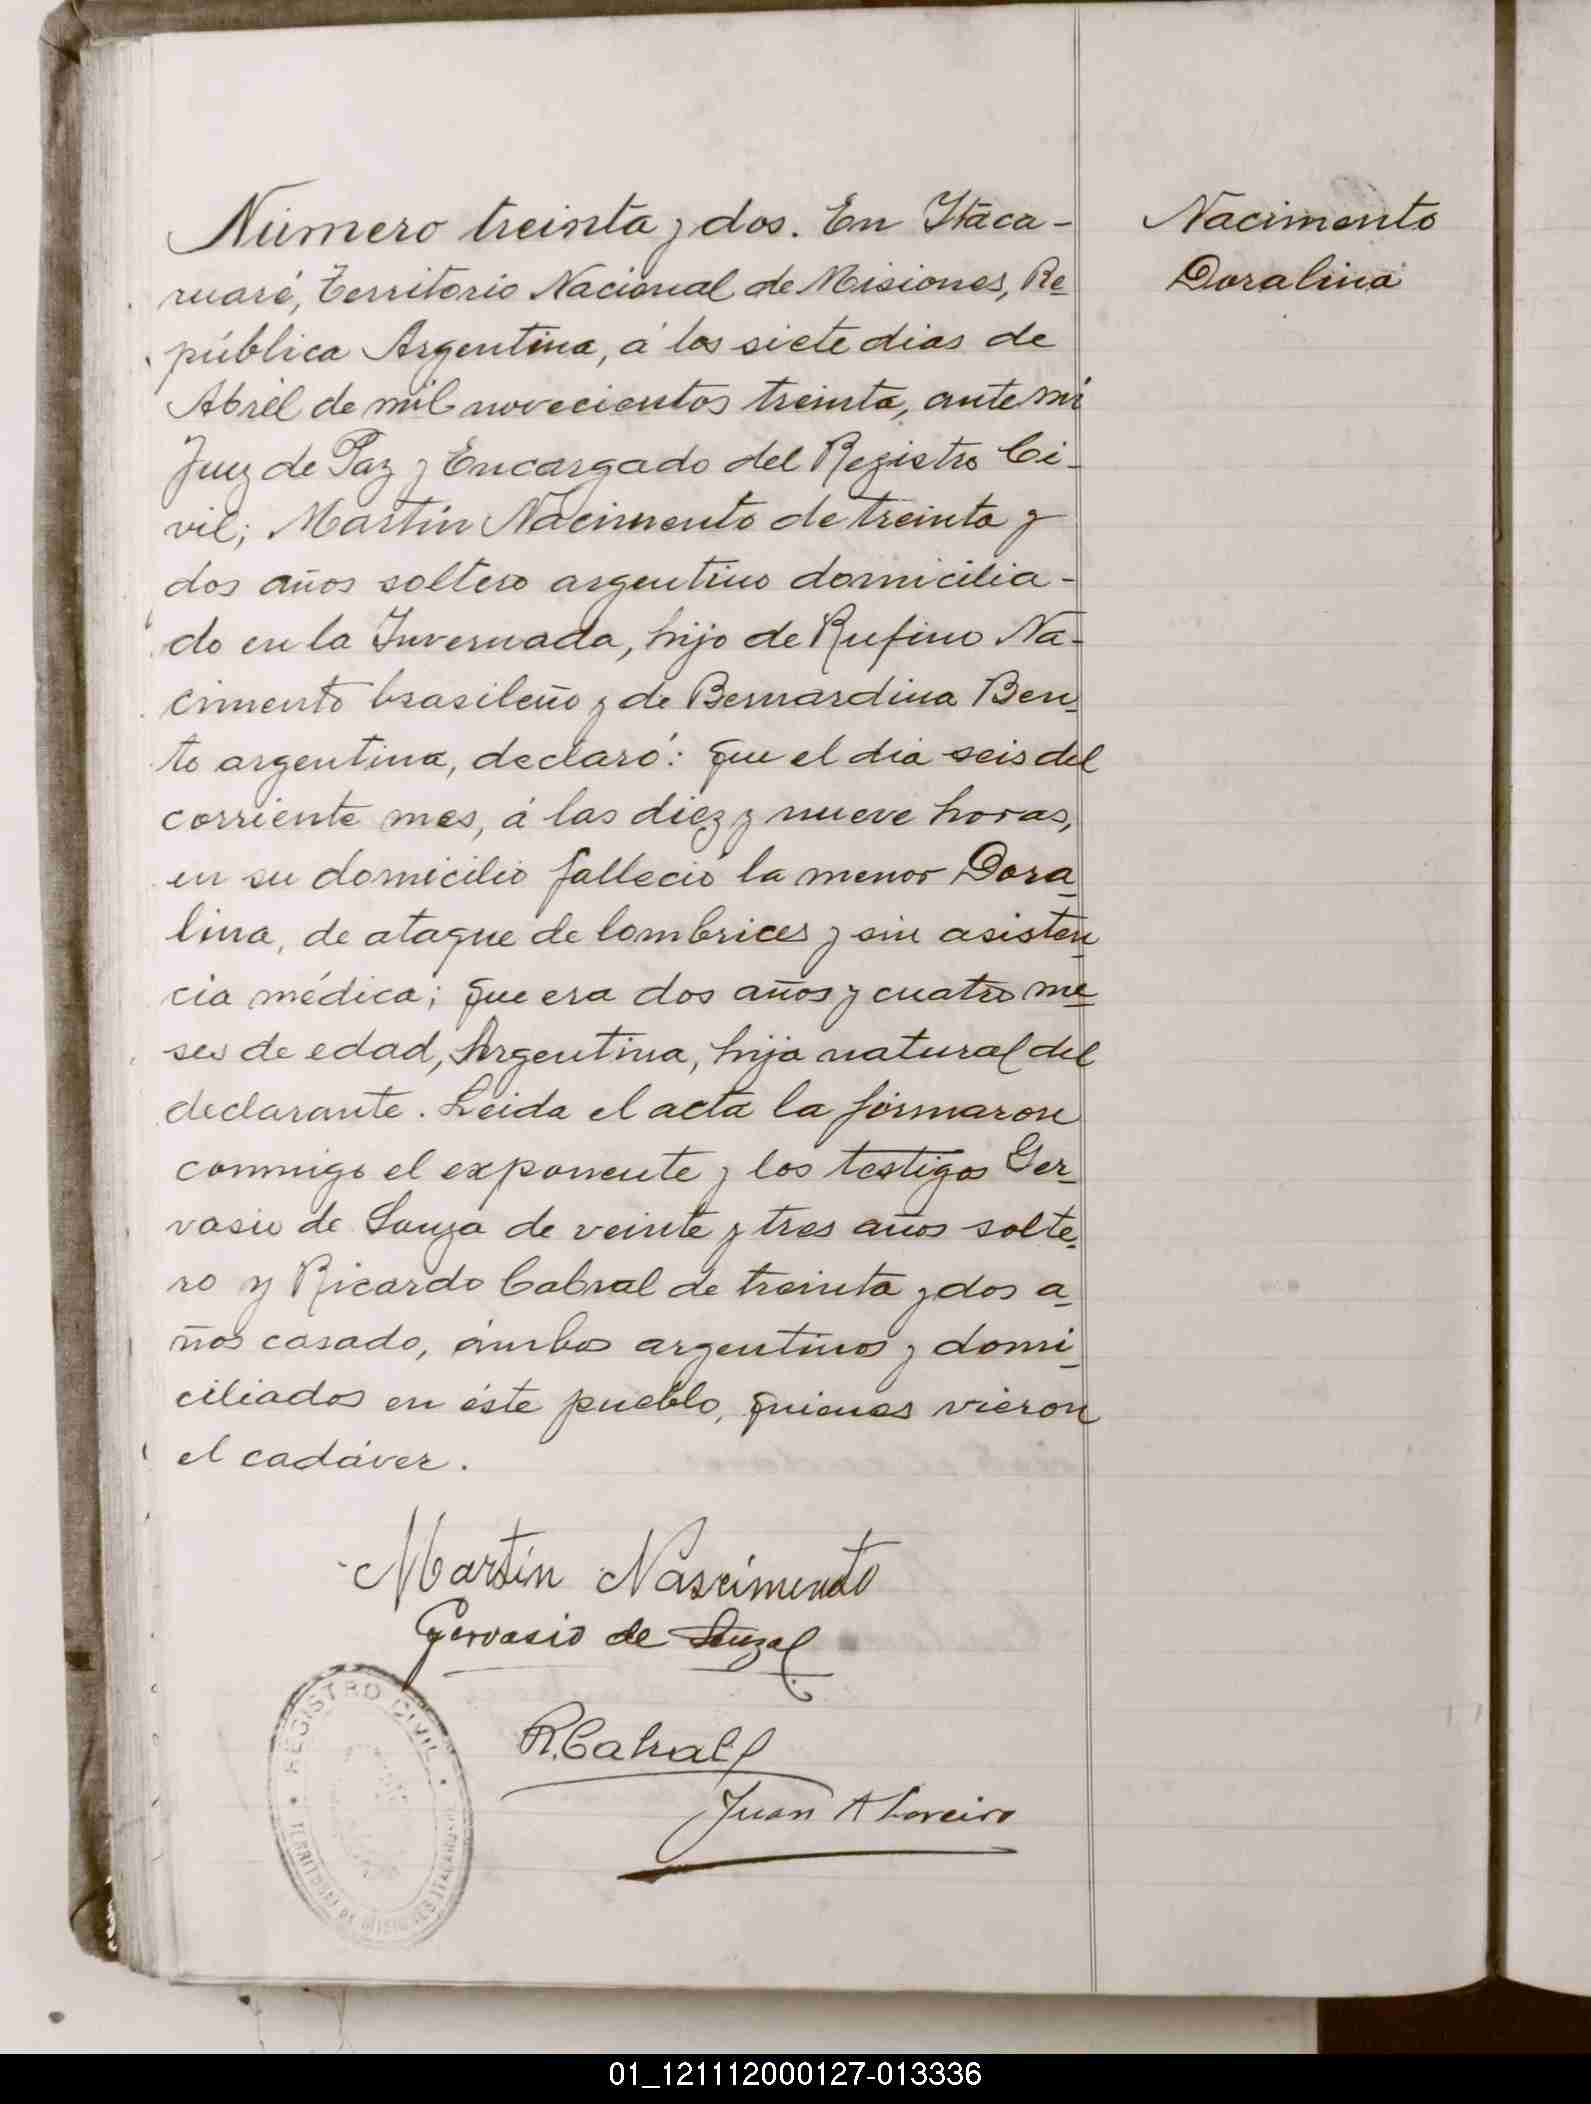 Número treinta y dos. En Itaca-
ruaré, Territorio Nacional de Misiones, Re-
pública Argentina, á los siete dias de
Abril de mil novecientos treinta, ante mi
Juez de Paz y Encargado del Registro Ci-
vil; Martín Nacimento de treinta y
dos años soltero argentino domicilia-
do en la Invernada, hijo de Rufino Na-
cimento brasileño y de Bernardina Ben-
to argentina, declaró: que el dia seis del
corriente mes, á las diez y nueve horas,
en su domicilio falleció la menor Dora-
lina, de ataque de lombrices y sin asisten-
cia médica; que era dos años y cuatro me-
ses de edad, Argentina, hija natural del
declarante. Leida el acta la firmaron
conmigo el exponente y los testigos Ger-
vasio de Souza de veinte y tres años solte-
ro y Ricardo Cabral de treinta y dos a-
ños casado, ámbos argentinos y domi-
ciliados en éste pueblo, quienes vieron
el cadáver.
Martín Nascimento
Gervasio de Souza
R. Cabral
Juan A Loreiro
REGISTRO CIVIL
TERRITORIO DE MISIONES ITACARUARÉ
Nacimento
Doralina
01_121112000127-013336